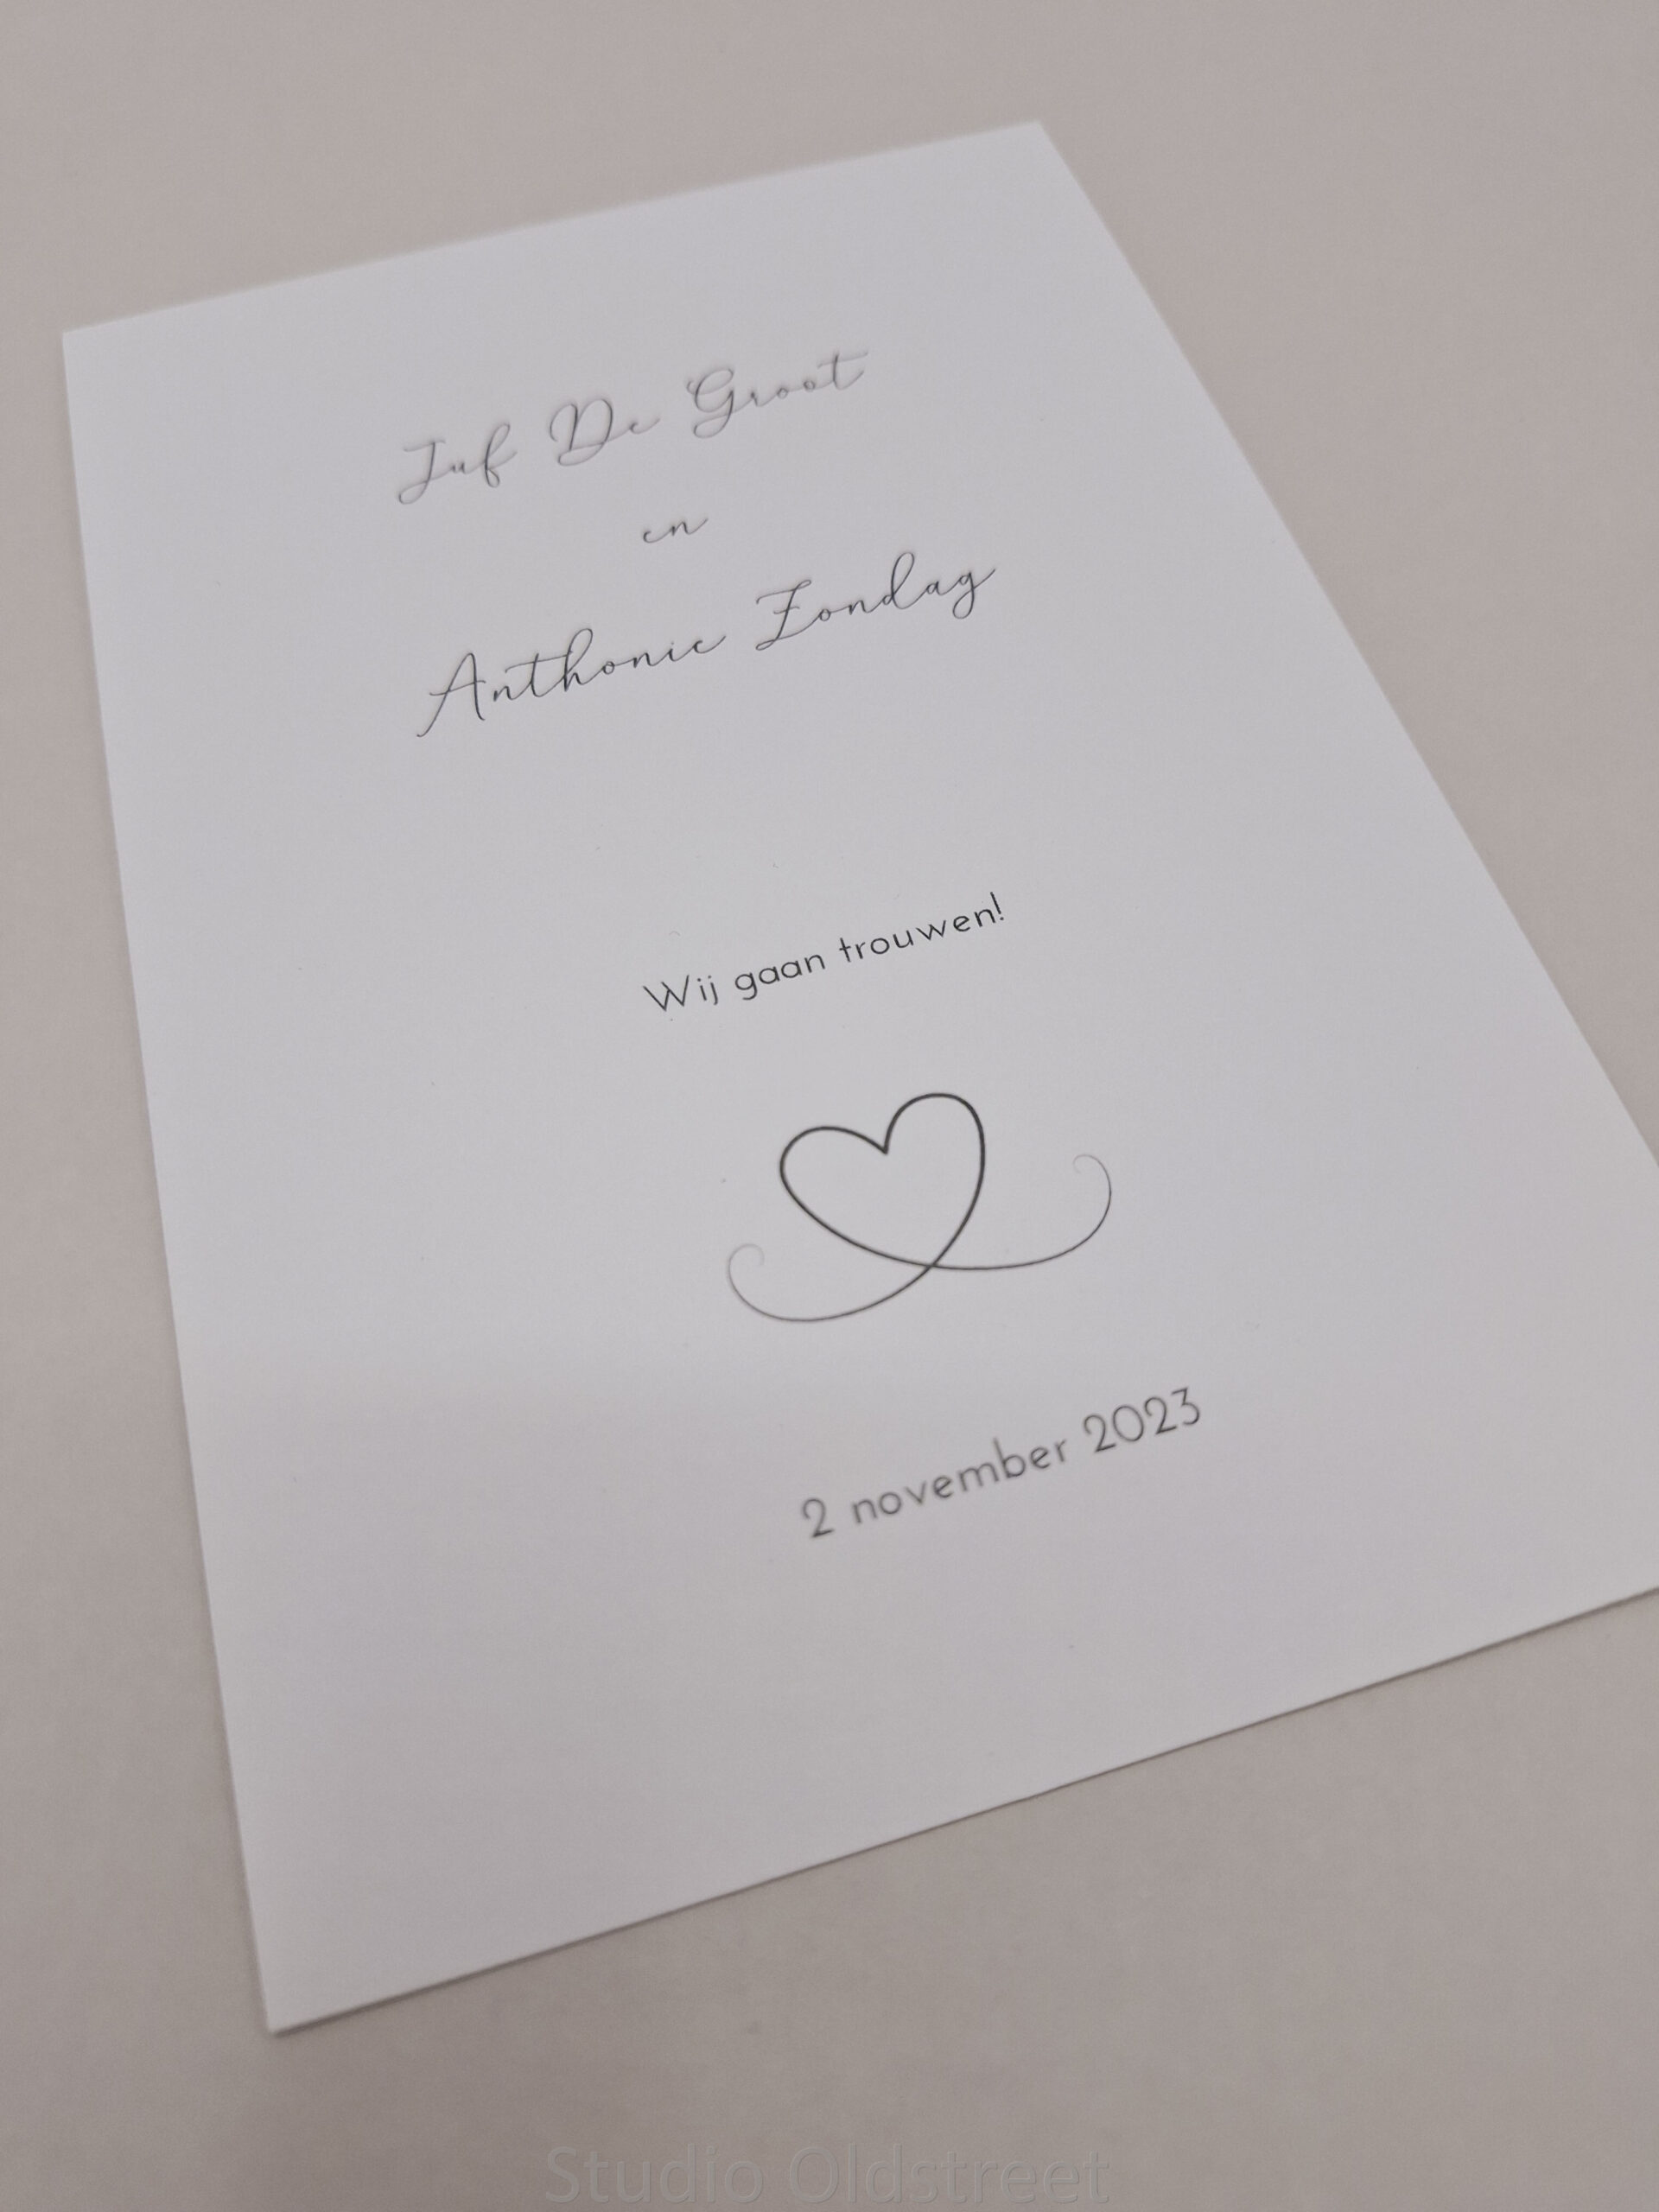 Juf De Groot
en
Anthonie Zondag
Wij gaan trouwen!
2 november 2023
Studio Oldstreet